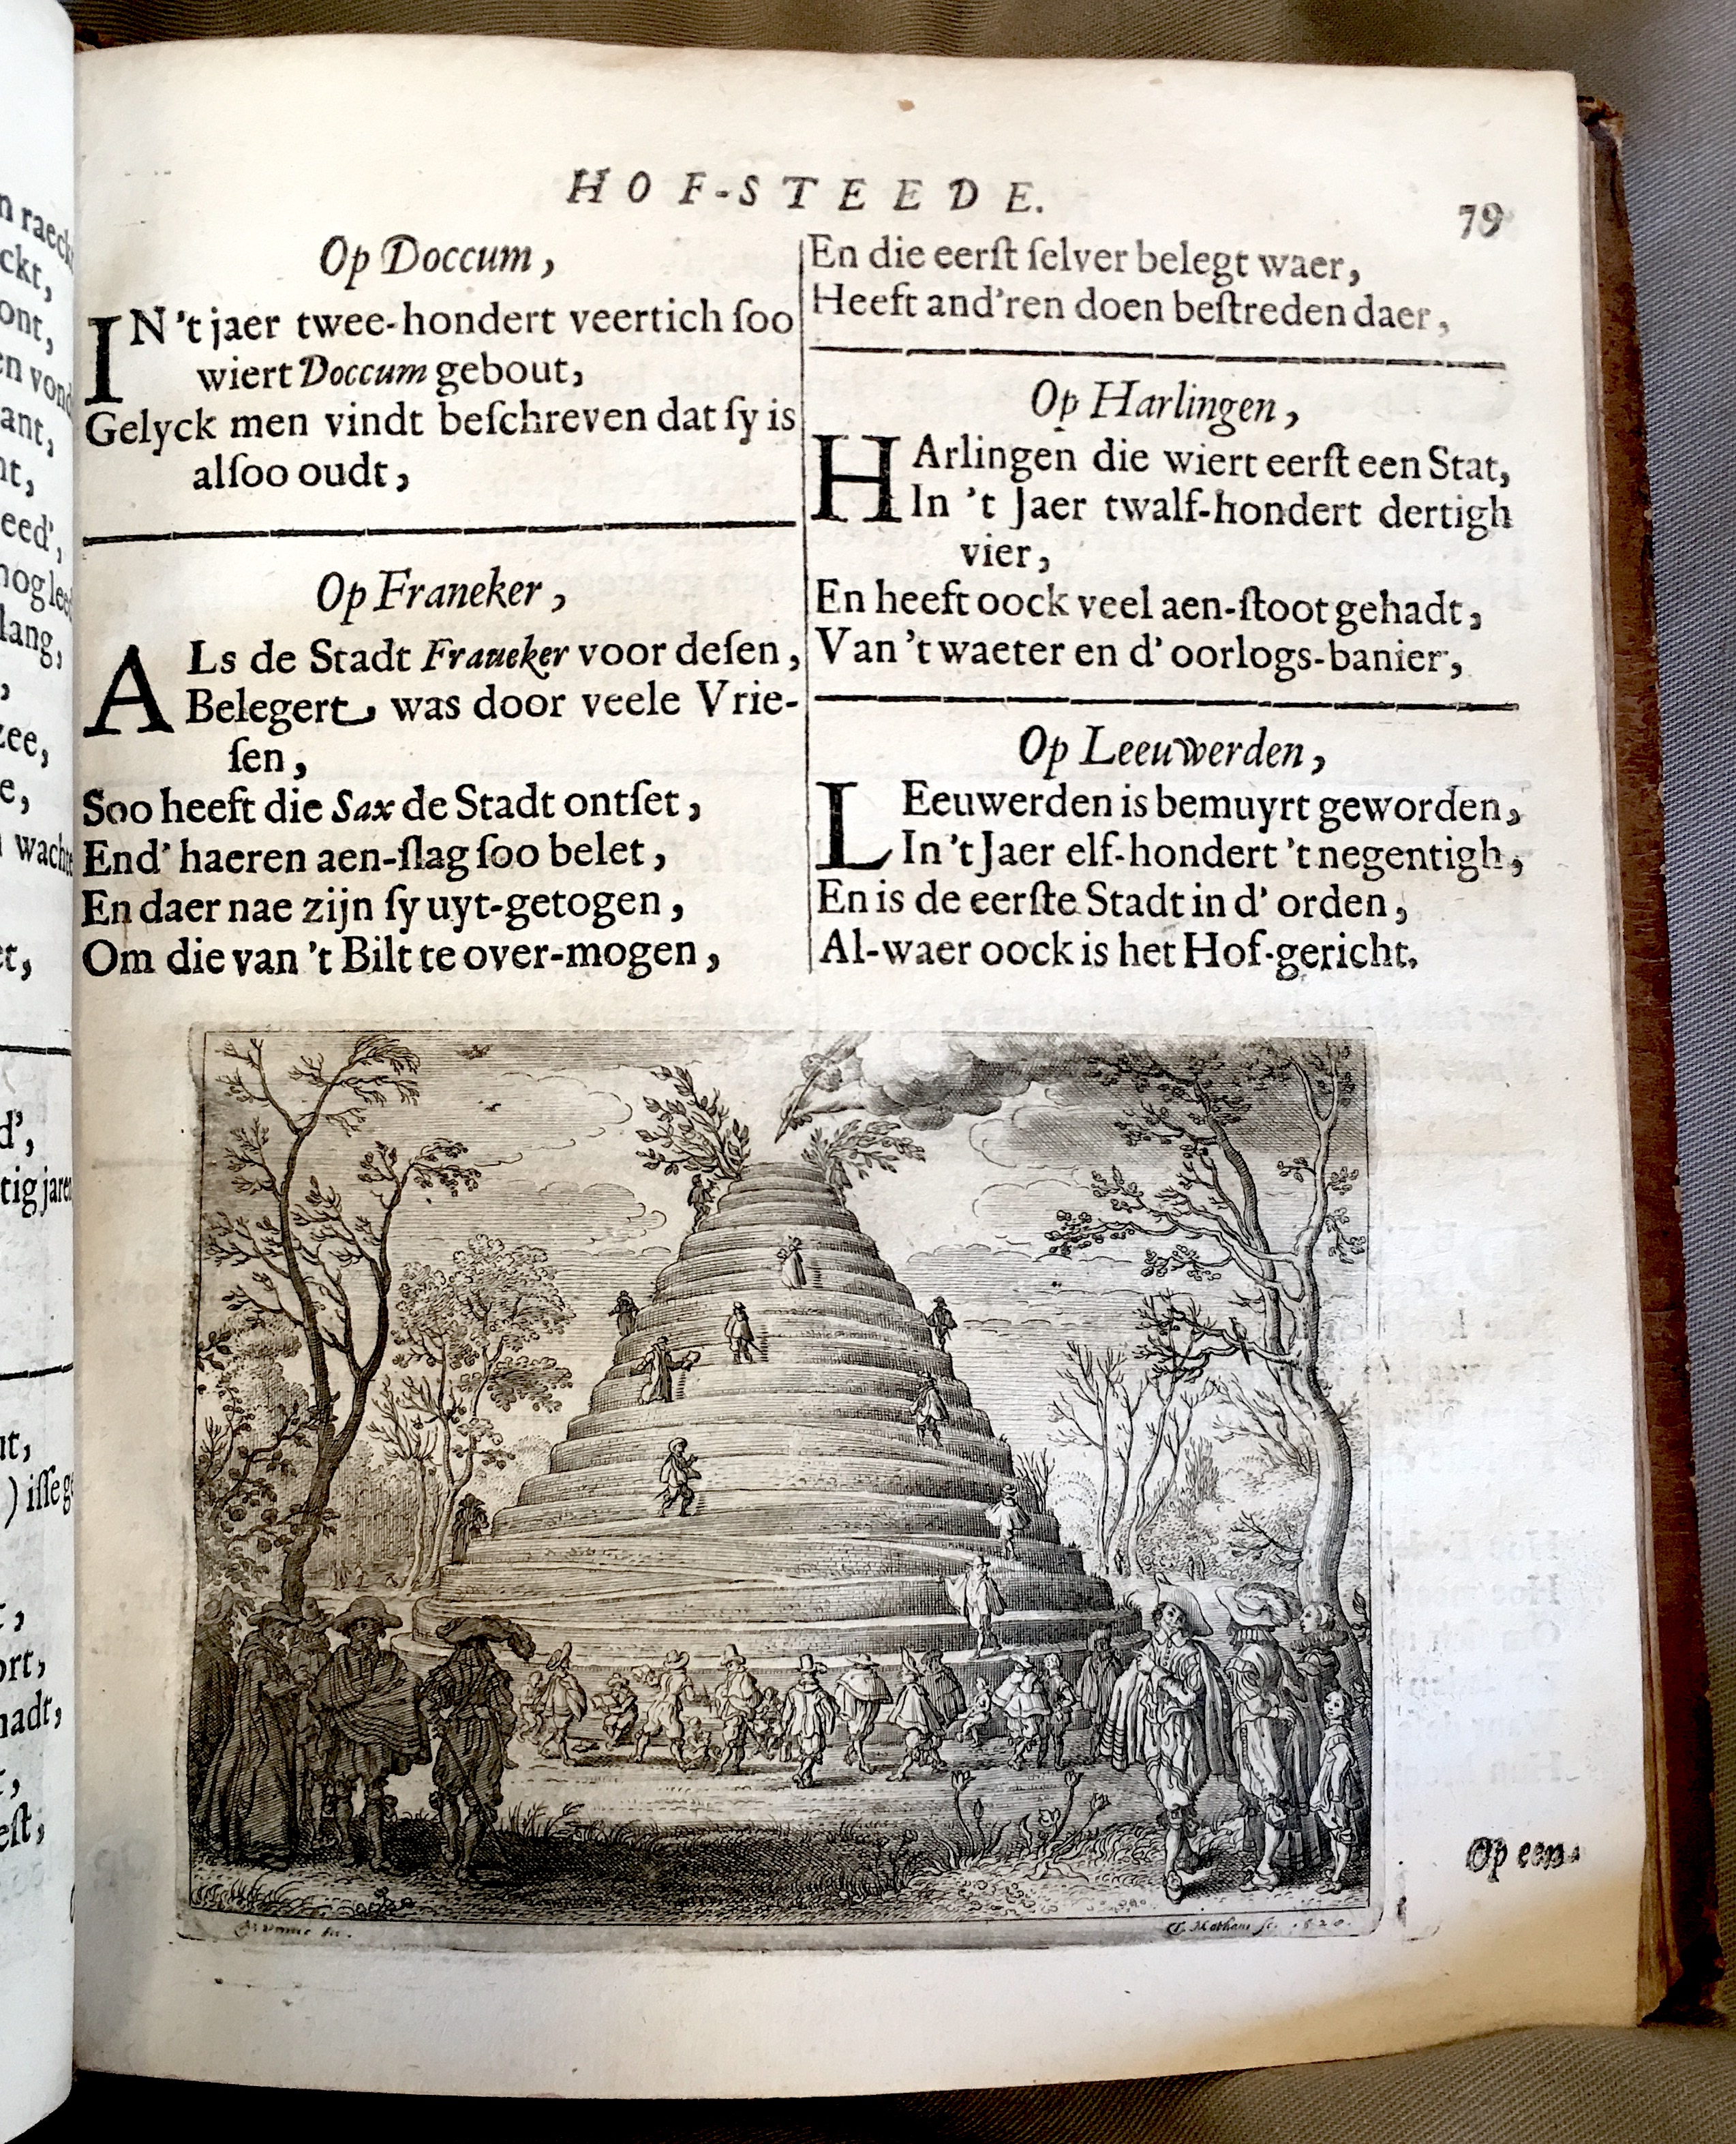 HOF-STEEDE.
79
Op Doccum,
IN 't jaer twee-hondert veertich ſoo
wiert Doccum gebout,
Gelyck men vindt beſchreven dat ſy is
alſoo oudt,
Op Franeker,
ALs de Stadt Fraueker voor deſen,
Belegert, was door veele Vrie-
ſen,
Soo heeft die Sax de Stadt ontſet,
End' haeren aen-ſlag ſoo belet,
En daer nae zijn ſy uyt-getogen,
Om die van 't Bilt te over-mogen,
En die eerſt ſelver belegt waer,
Heeft and'ren doen beſtreden daer,
Op Harlingen,
HArlingen die wiert eerſt een Stat,
In 't Jaer twalf-hondert dertigh
vier,
En heeft oock veel aen-ſtoot gehadt,
Van 't waeter en d' oorlogs-banier,
Op Leeuwerden,
LEeuwerden is bemuyrt geworden,
In 't Jaer elf-hondert 't negentigh,
En is de eerſte Stadt in d' orden,
Al-waer oock is het Hof-gericht.
Op een
n raeck
ckt,
ont,
en vond
ant,
nt,
eed',
lang,
zee,
e,
wacht
et,
d',
tig jaren
ut,
) iſſe ge
ort,
hadt,
eſt,